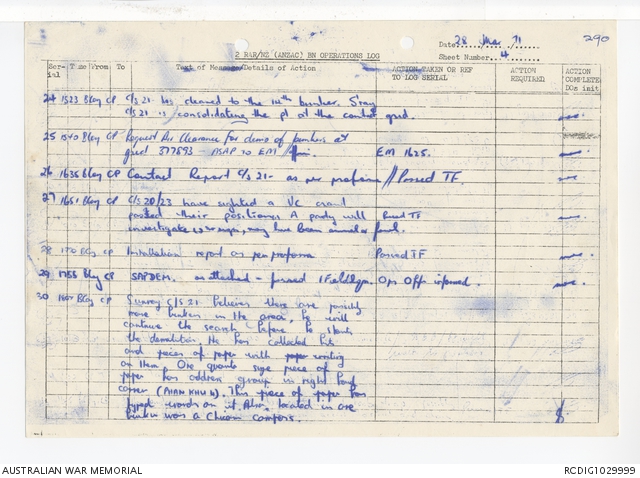 290
Date 28 Mar 71
2 RAR/NZ (ANZAC) BN OPERATIONS LOG
Sheet Number 4
Serial Time From To Text of Message/Details of Action ACTION TAKEN OR REF TO LOG SERIAL ACTION REQUIRED ACTION COMPLETE DOs init
24 1523 Bkey CP C/S 21 has cleared to the 14th bunker.
C/S 21 is consolidating the pl at the contact grid.
25 1540 Bkey CP Request Air Clearance for demo of bunkers at
grid 377893 - ASAP to EM EM 1625.
26 1635 Bkey CP Contact Report C/S 21 - as per proforma // Passed TF.
27 1651 Bkey CP C/S 20/23 have sighted a VC crawl
passed their position. A party will Passed TF
investigate may have been animal
28 CP Installation report as per proforma Passed TF
29 1755 Bkey CP as attached - passed 1 Field Ops Offr informed.
30 Bkey CP C/S 21 believes there are possibly
more bunkers in the area, he will
continue the search before he starts
the demolition. He has collected kits
and pieces of paper with writing
on them. One quarto size piece of
paper has address group in right hand
corner This piece of paper has
typed words on it. Also located in one
bunker was a Chicom compass.
AUSTRALIAN WAR MEMORIAL
RCDIG1029999